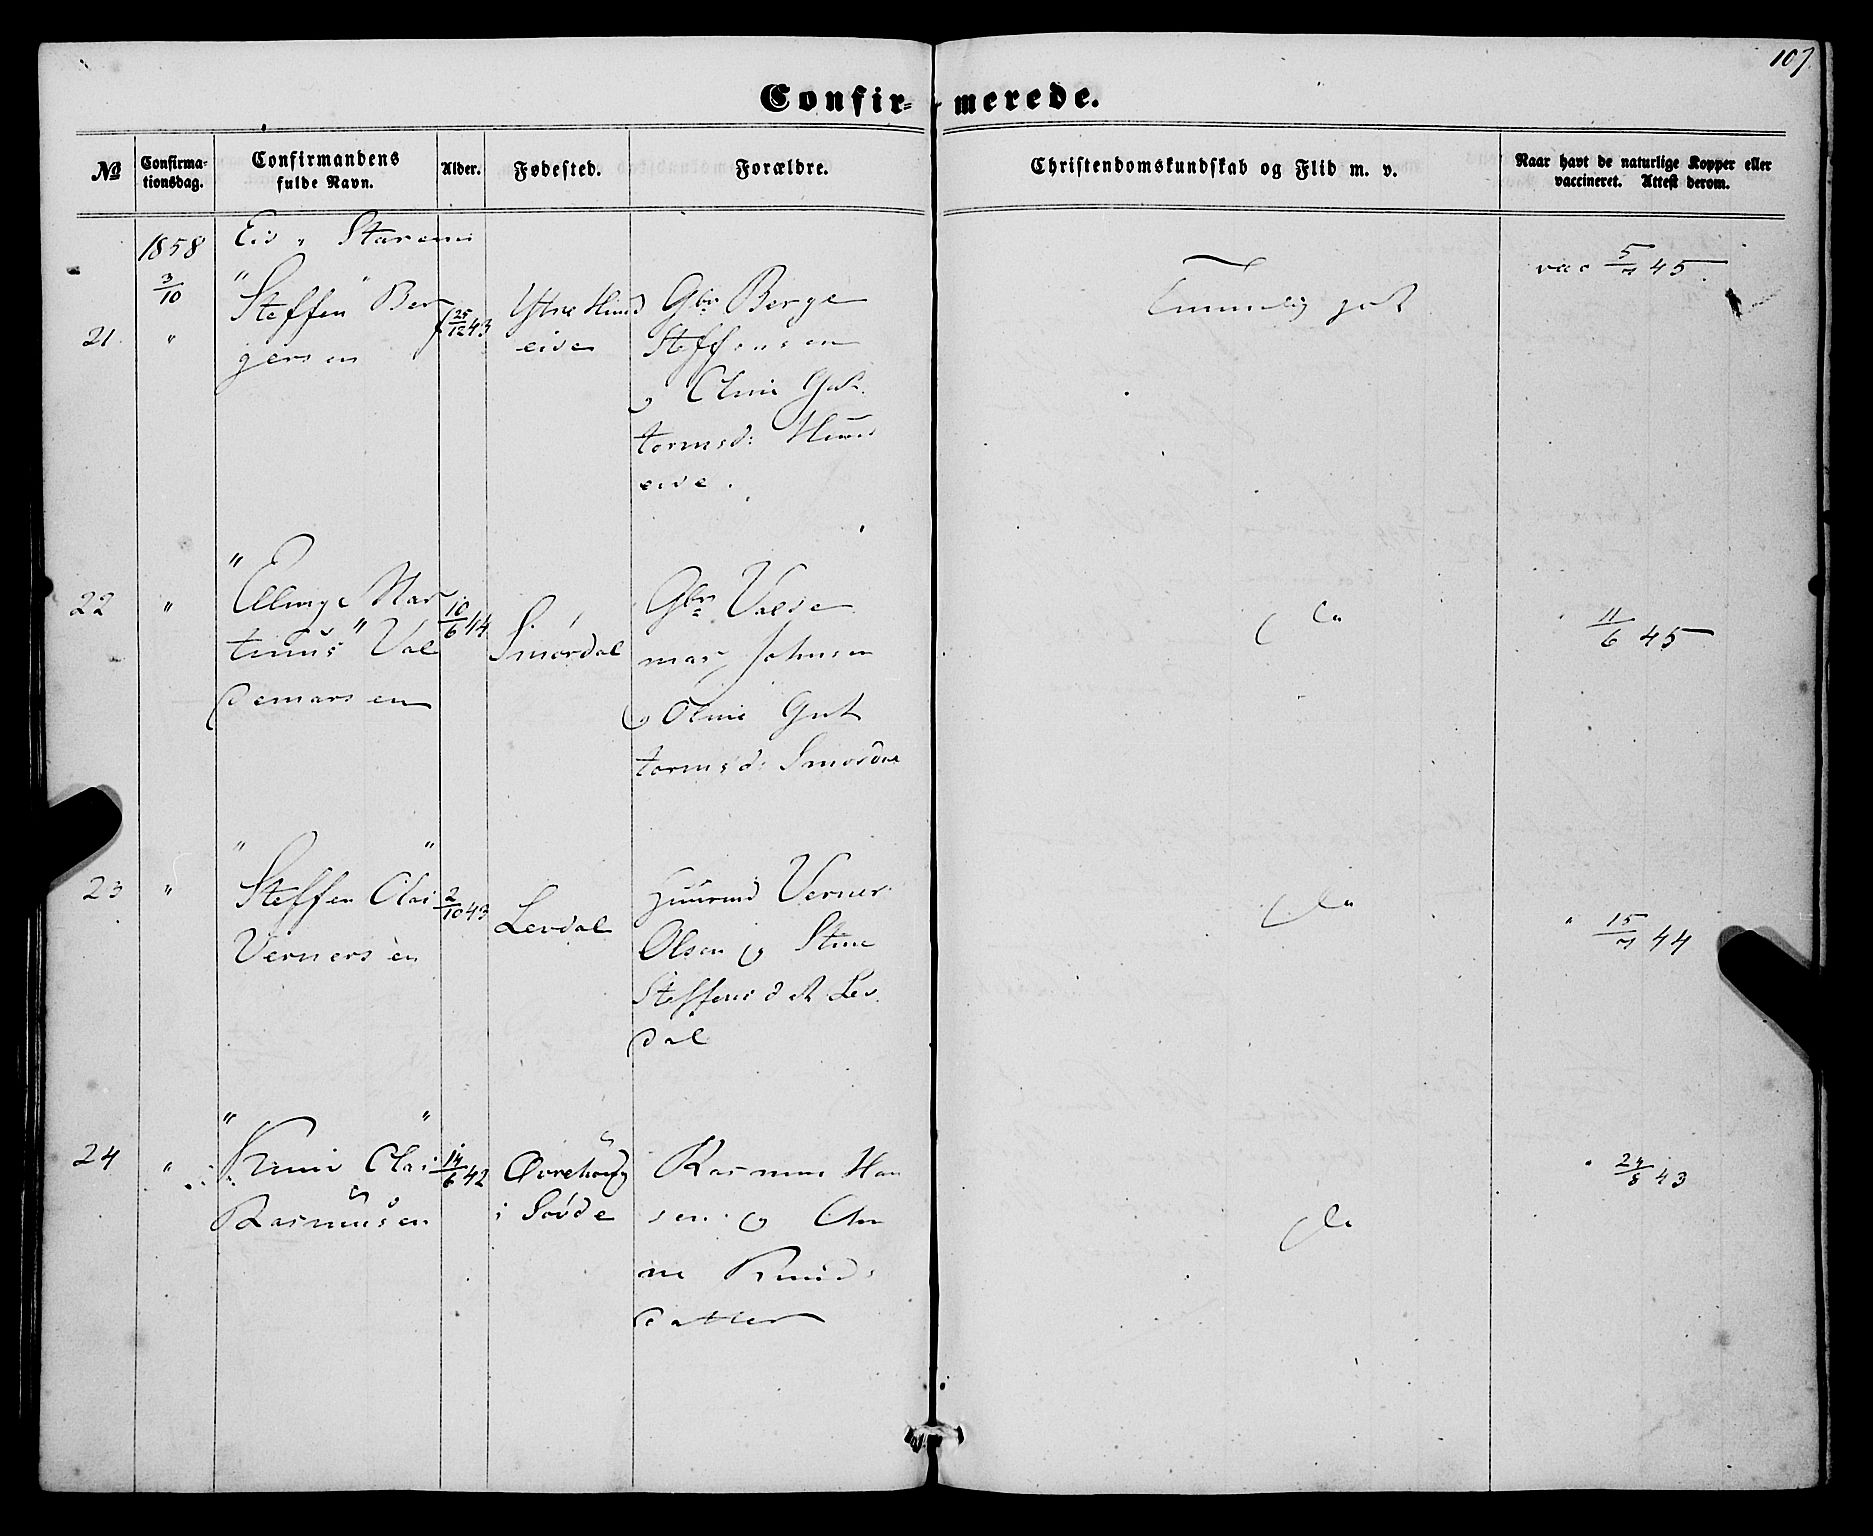 107.
Confir- merede.
No
Confirma-
tionsdag.
Confirmandens
fulde Navn.
Alder.
Fødested.
Forældre.
Christendomskundskab og Flid m. v.
Naar havt de naturlige Kopper eller
vaccineret. Attest derom.
1858
Eid
3/10
21
"
"Steffen" Ber
gersen
f 25/12 43
Ytre Hund
eide
Gbr Berge
Steffensen
og Oline Gut
tormsd: Hund
eide.
Temmelig godt
vac 5/7 45
22
"
"Elling Mar
tinus" Val
demarsen
10/6 44
Smørdal
Gbr Valde
mar Johnsen
og Oline Gut
tormsd: Smørdal
do
" 11/6 45
23
"
"Steffen Olai"
Vernersen
2/10 43
Levdal
Huusmd Verner
Olsen og Stine
Steffensdatt Lev
dal
do
" 15/7 44
24
"
"Knud Olai"
Rasmussen
14/6 42
Øvrehoug
i Søvde
Rasmus Han
sen og An
ne Knuds
datter
do
" 24/8 43